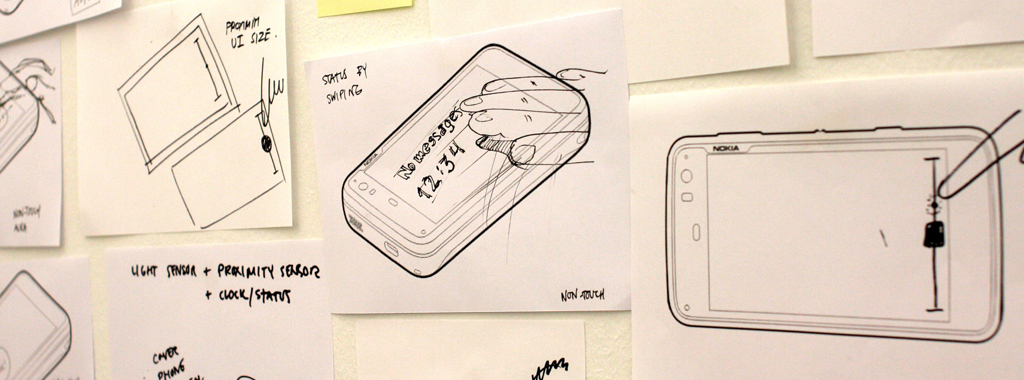 PROXIMITY
UI SIZE.
STATUS BY
SWIPING
No messages
12:34
NON-TOUCH
NOKIA
NON-TOUCH
LIGHT SENSOR + PROXIMITY SENSOR
+ CLOCK/STATUS
COVER
PHONE